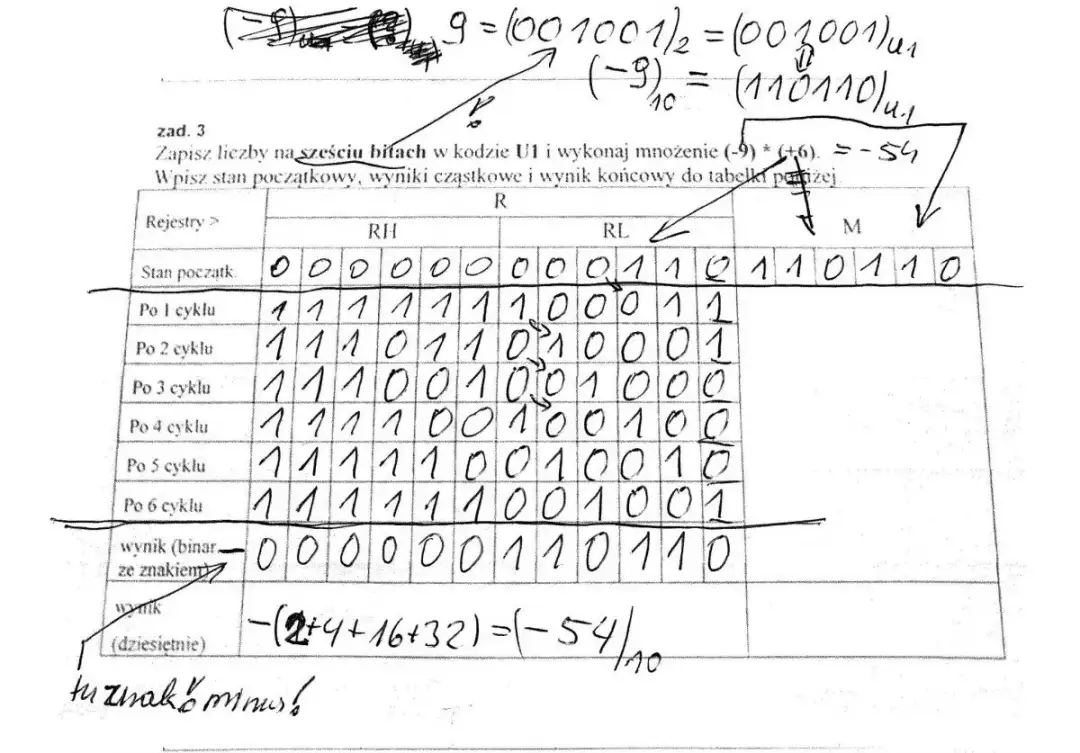 9 = (001001)2 = (001001)U1
(-9)10 = (110110)U1
zad. 3
Zapisz liczby na sześciu bitach w kodzie U1 i wykonaj mnożenie (-9) * (+6). = -54
Wpisz stan początkowy, wyniki cząstkowe i wynik końcowy do tabelki poniżej
Rejestry > R M
RH RL
Stan początk. 0 0 0 0 0 0 0 0 0 1 1 0 1 1 0 1 1 0
Po 1 cyklu 1 1 1 1 1 1 1 0 0 0 1 1
Po 2 cyklu 1 1 1 0 1 1 0 1 0 0 0 1
Po 3 cyklu 1 1 1 0 0 1 0 0 1 0 0 0
Po 4 cyklu 1 1 1 1 0 0 1 0 0 1 0 0
Po 5 cyklu 1 1 1 1 1 0 0 1 0 0 1 0
Po 6 cyklu 1 1 1 1 1 1 0 0 1 0 0 1
wynik (binar. - 0 0 0 0 0 0 1 1 0 1 1 0
ze znakiem)
wynik
(dziesiętnie) -(2+4+16+32) = (-54)10
tu znak minus!